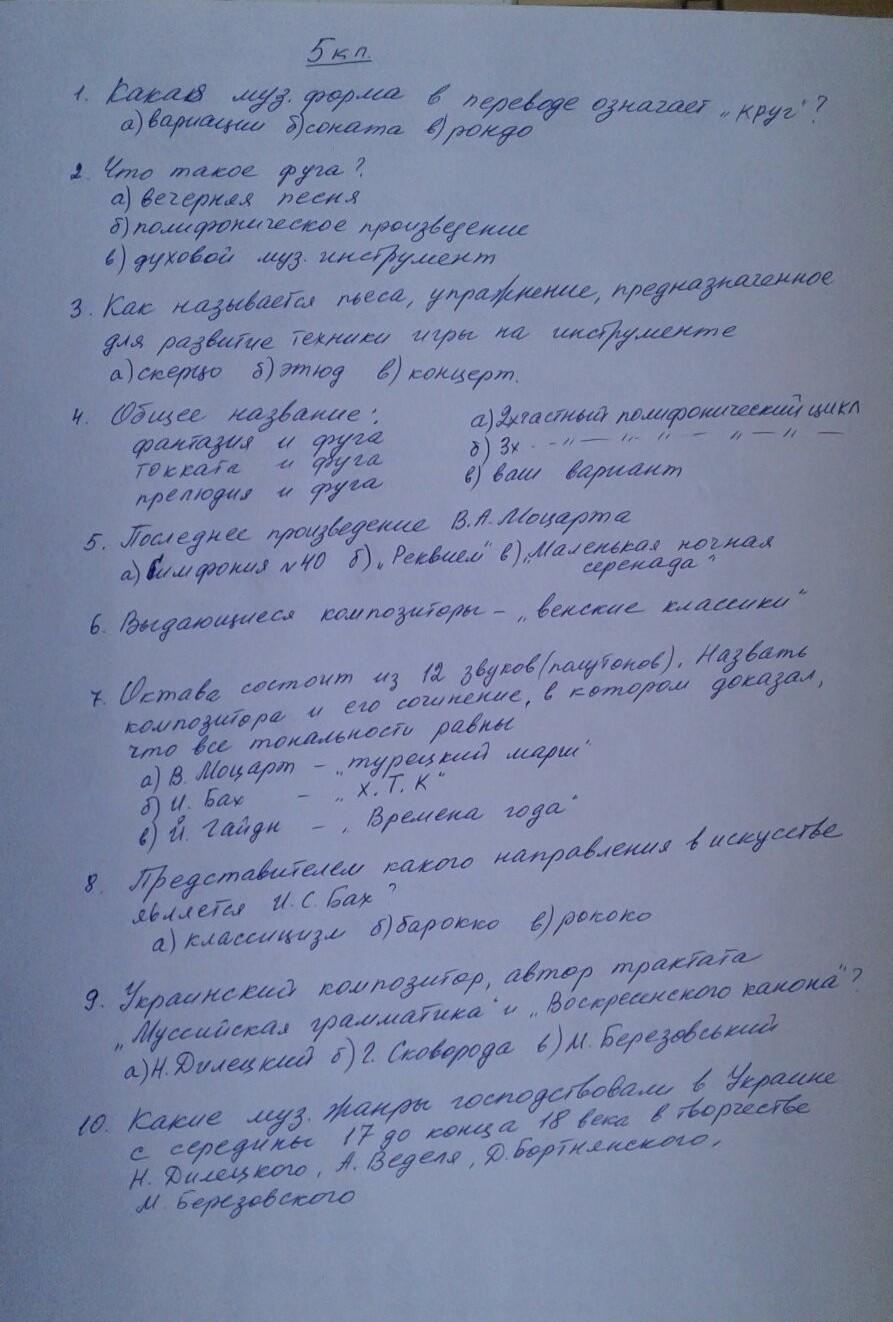 5 кл.
1. Какая муз. форма в переводе означает „круг"?
а) вариации б) соната в) рондо
2. Что такое фуга?
а) вечерняя песня
б) полифоническое произведение
в) духовой муз. инструмент
3. Как называется пьеса, упражнение, предназначенное
для развитие техники игры на инструменте
а) скерцо б) этюд в) концерт.
4. Общее название:
фантазия и фуга
токката и фуга
прелюдия и фуга
а) 2хчастный полифонический цикл
б) 3х - -„- — -„- „ — „ — „ —
в) ваш вариант
5. Последнее произведение В.А. Моцарта
а) Симфония №40 б) „Реквием" в) „Маленькая ночная
серенада"
6. Выдающиеся композиторы – „венские классики"
7. Октава состоит из 12 звуков (полутонов). Назвать
композитора и его сочинение, в котором доказал,
что все тональности равны
а) В. Моцарт – „турецкий марш"
б) И. Бах – „Х.Т.К"
в) Й. Гайдн – „Времена года"
8. Представителем какого направления в искусстве
является И.С. Бах?
а) классицизм б) барокко в) рококо
9. Украинский композитор, автор трактата
„Муссийская грамматика" и „Воскресенского канона"?
а) Н. Дилецкий б) Г. Сковорода в) М. Березовський
10. Какие муз. жанры господствовали в Украине
с середины 17 до конца 18 века в творчестве
Н. Дилецкого, А. Веделя, Д. Бортнянского,
М. Березовского